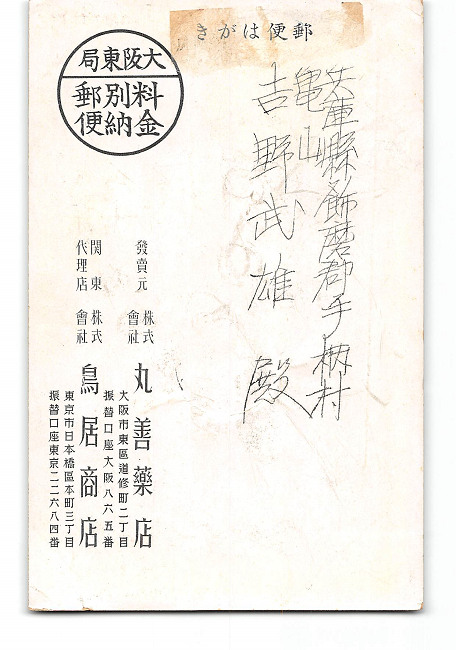 郵便はがき
兵庫縣飾磨郡手柄村
亀山
吉野武雄殿
大阪東局
料金別納郵便
發賣元 株式會社 丸善藥店
大阪市東區道修町二丁目
振替口座大阪八六五番
関東代理店 株式會社 鳥居商店
東京市日本橋區本町三丁目
振替口座東京二二六八四番